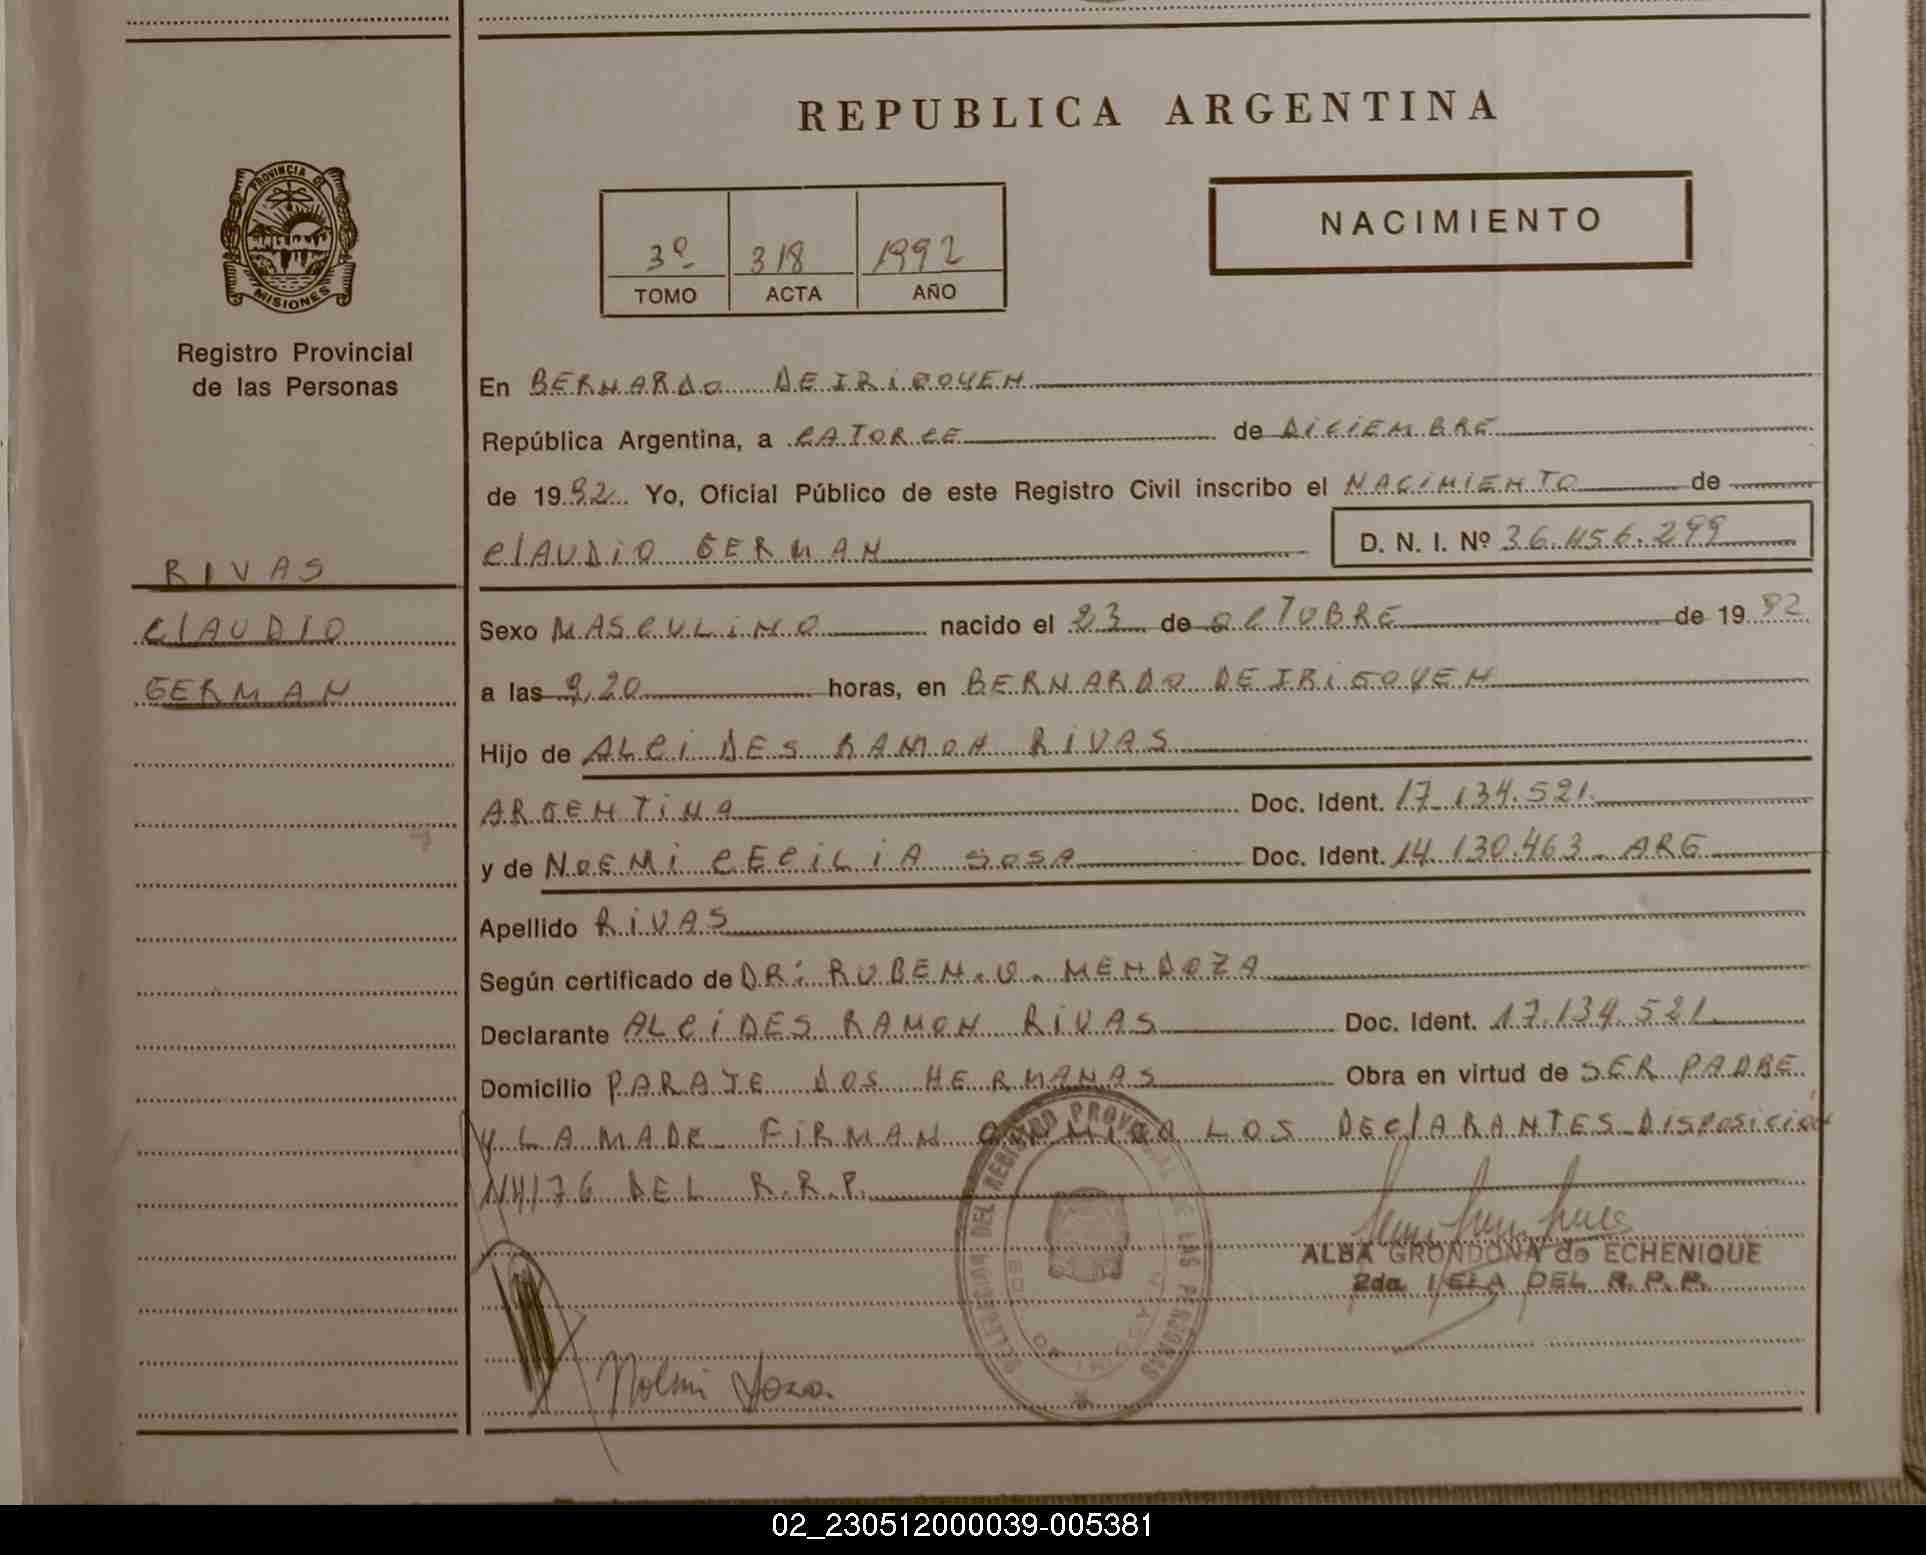 REPUBLICA ARGENTINA
NACIMIENTO
3º 318 1992
TOMO ACTA AÑO
PROVINCIA DE
MISIONES
Registro Provincial
de las Personas
RIVAS
CLAUDIO
GERMAN
En BERNARDO DE IRIGOYEN
República Argentina, a CATORCE de DICIEMBRE
de 1992 Yo, Oficial Público de este Registro Civil inscribo el NACIMIENTO de
CLAUDIO GERMAN D. N. I. Nº 36.456.299
Sexo MASCULINO nacido el 23 de OCTUBRE de 1992
a las 9,20 horas, en BERNARDO DE IRIGOYEN
Hijo de ALCIDES RAMON RIVAS
ARGENTINA Doc. Ident. 17.134.521
y de NOEMI CECILIA SOSA Doc. Ident. 14.130.463. ARG
Apellido RIVAS
Según certificado de DR: RUBEN. O. MENDOZA
Declarante ALCIDES RAMON RIVAS Doc. Ident. 17.134.521
Domicilio PARAJE DOS HERMANAS Obra en virtud de SER PADRE
Y LA MADRE FIRMAN CONMIGO LOS DEClARANTES DISPOSICIÓN
N4/76 DEL R.R.P.
ALBA GRONDONA de ECHENIQUE
2da JEFA DEL R.P.P.
Noemi Sosa
DEL REGISTRO PROVINCIAL DE LAS PERSONAS
02_230512000039-005381